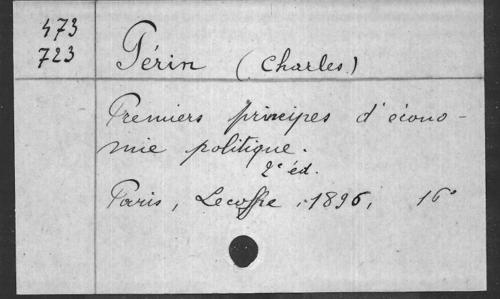 473
723
Périn (Charles)
Premiers principes d'écono-
mie politique.
2e éd.
Paris, Lecoffre, 1896, 16°